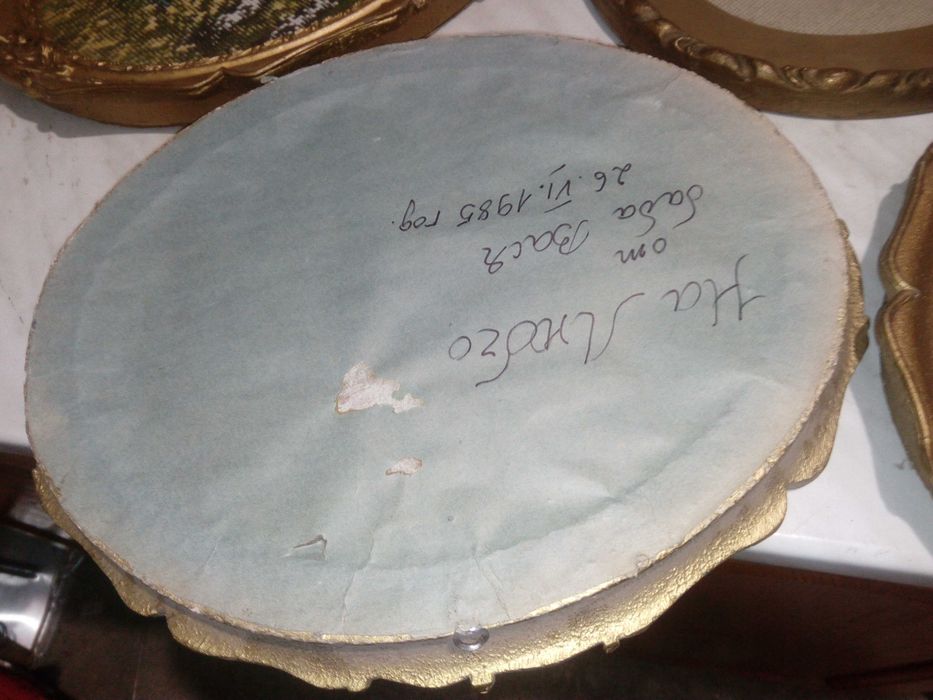 На Любго
от
баба Вася
26.VI.1985 год.